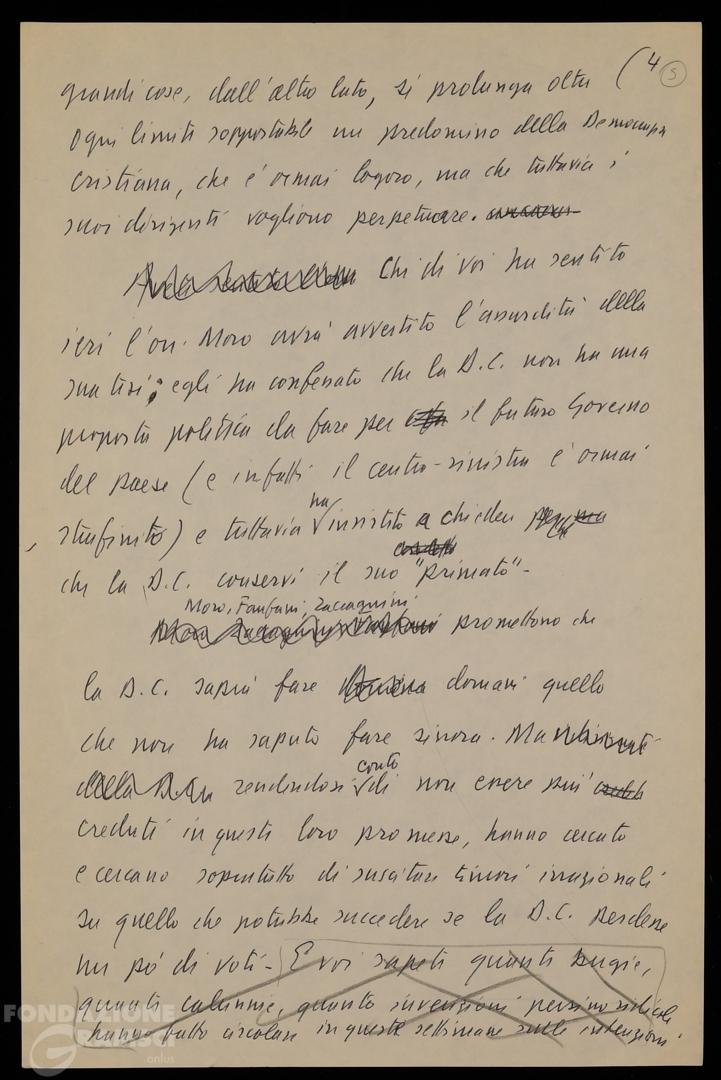 (4 5
grandi cose, dall'altro lato, si prolunga oltre
ogni limite sopportabile un predominio della Democrazia
Cristiana, che è ormai logoro, ma che tuttavia i
suoi dirigenti vogliono perpetuare.
Chi di voi ha sentito
ieri l'on. Moro avrà avvertito l'assurdità della
sua tesi; egli ha confessato che la D.C. non ha una
proposta politica da fare per il futuro Governo
del paese (e infatti il centro-sinistra è ormai
strafinito) e tuttavia ha insistito a chiedere
che la D.C. conservi il suo "primato"-
Moro, Fanfani, Zaccagnini
promettono che
la D.C. saprà fare domani quello
che non ha saputo fare sinora. Ma
rendendosi conto di non essere più
creduti in queste loro promesse, hanno cercato
e cercano soprattutto di suscitare timori irrazionali
su quello che potrebbe succedere se la D.C. perdesse
un pò di voti- E voi sapete quante bugie,
quante calunnie, quante invenzioni persino ridicole
hanno fatto circolare in queste settimane sulle intenzioni
FONDAZIONE
Gramsci
onlus